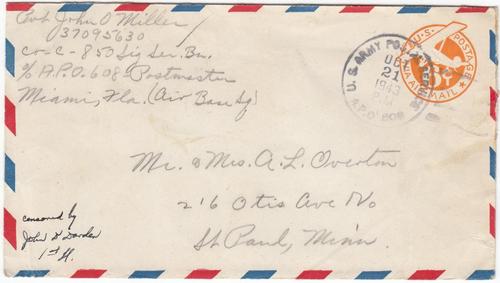 Pvt John O Miller
37095630
Co-C-850 Sig Ser. Bn.
c/o A.P.O. 608 Postmaster
Miami, Fla. (Air Base Sq)
U.S. ARMY POSTAL SERVICE
OCT
21
1943
A.P.O. 608
U.S. POSTAGE
VIA AIR MAIL
6c
Mr. & Mrs. A. L. Overton
216 Otis Ave No
St Paul, Minn.
censored by
John D Darden
1st Lt.